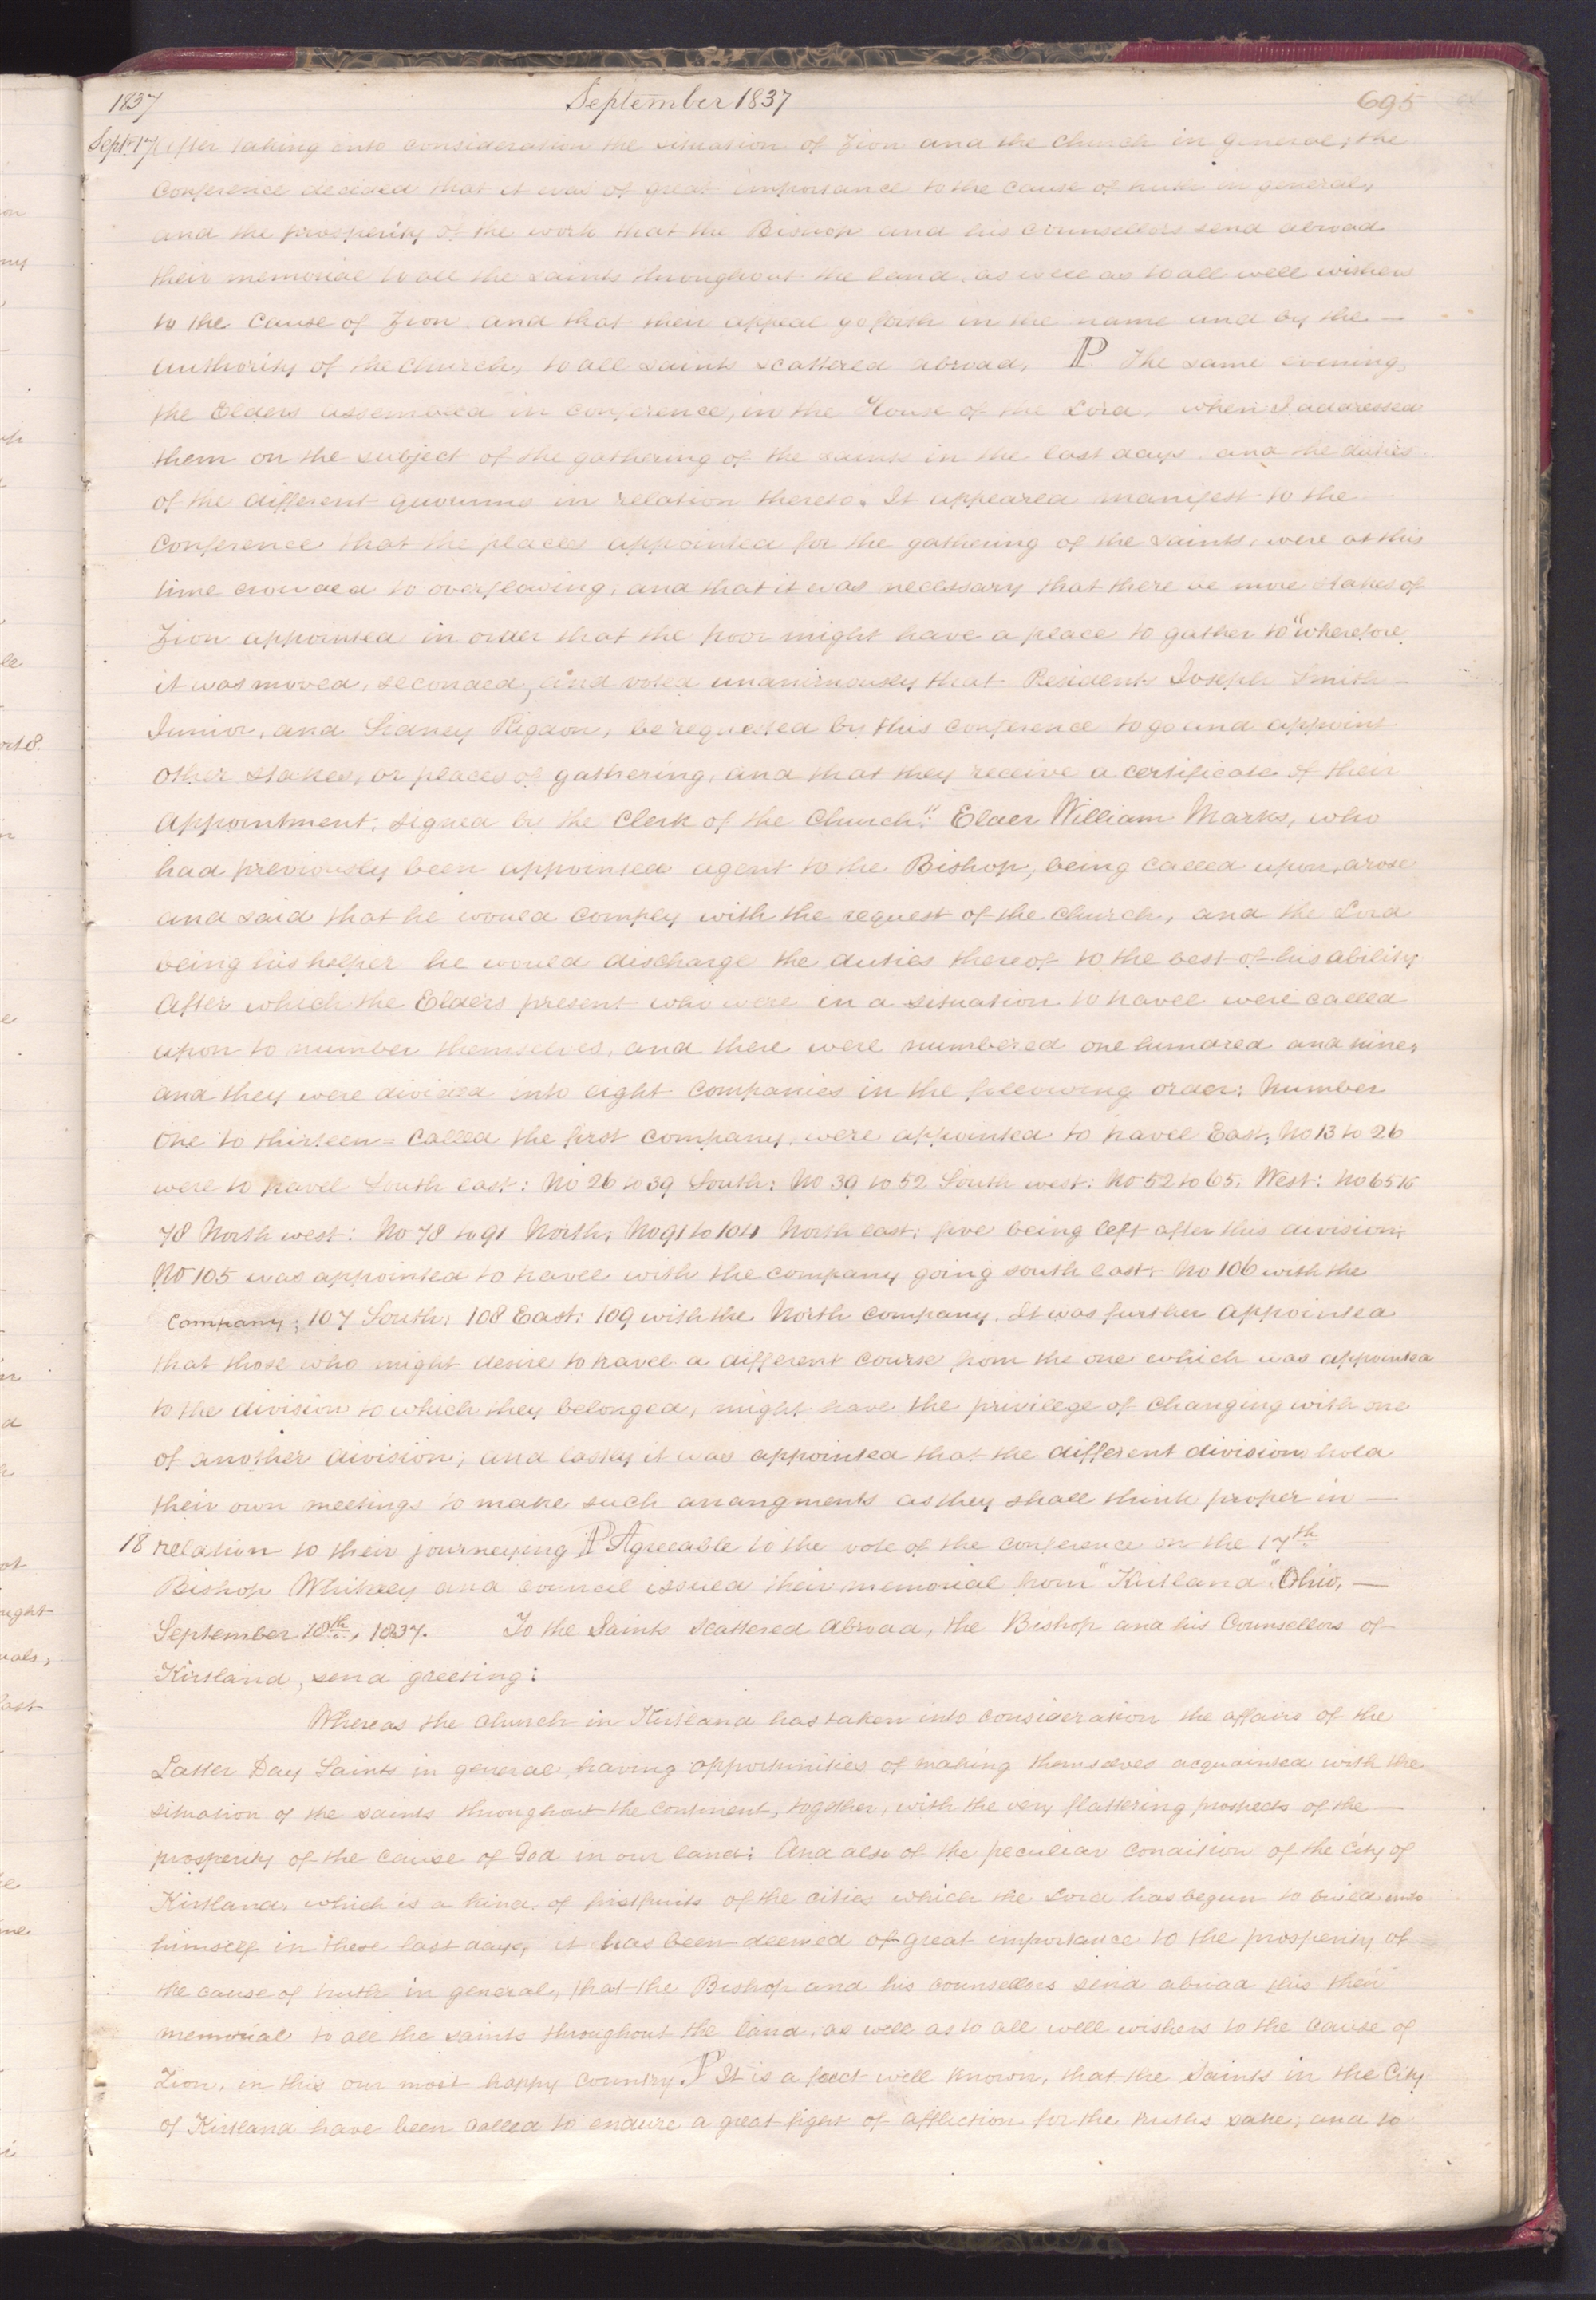 1837 September 1837 695
Sept. 17 After taking into consideration the situation of Zion and the Church in general, the
Conference decided that it was of great importance to the cause of truth in general,
and the prosperity of the work that the Bishop and his counsellors send abroad
their memorial to all the saints throughout the land, as well as to all well wishers
to the Cause of Zion and that their appeal go forth in the name and by the —
authority of the Church, to all saints scattered abroad, P. The same evening,
the Elders assembled in conference, in the House of the Lord, when I addressed
them on the subject of the gathering of the saints in the last days and the duties
of the different quorums in relation thereto. It appeared manifest to the —
Conference that the places appointed for the gathering of the saints, were at this
time crowded to overflowing, and that it was necessary that there be more stakes of
Zion appointed in order that the poor might have a place to gather to "wherefore
it was moved, seconded, and voted unanimously that Presidents Joseph Smith —
Junior, and Sidney Rigdon, be requested by this conference to go and appoint
other stakes, or places of gathering, and that they receive a certificate of their
appointment, signed by the Clerk of the Church." Elder William Marks, who
had previously been appointed agent to the Bishop, being called upon, arose
and said that he would comply with the request of the church, and the Lord
being his helper he would discharge the duties thereof to the best of his ability
After which the Elders present who were in a situation to travel were called
upon to number themselves, and there were numbered one hundred and nine,
and they were divided into eight companies in the following order; Number
One to thirteen = called the first company, were appointed to travel East; No 13 to 26
were to travel South east: No 26 to 39 South: No 39 to 52 South west: No 52 to 65. West: No 65 to
78 North west: No 78 to 91 North; No 91 to 104 North east; five being left after this division;
No 105 was appointed to travel with the company going south east; No 106 with the
company; 107 South; 108 East; 109 with the North company. It was further appointed
that those who might desire to travel a different course from the one which was appointed
to the division to which they belonged, might have the privilege of changing with one
of another division; and lastly it was appointed that the different division hold
their own meetings to make such arrangments as they shall think proper in —
18 relation to their journeying P Agreeable to the vote of the conference on the 17th
Bishop Whitney and council issued their memorial from "Kirtland" Ohio, —
September 18th, 1837. To the Saints scattered abroad, the Bishop and his Counsellors of
Kirtland, send greeting:
Whereas the church in Kirtland has taken into consideration the affairs of the
Latter Day Saints in general, having opportunities of making themselves acquainted with the
situation of the saints throughout the continent, together, with the very flattering prospects of the —
prosperity of the cause of God in our land; And also of the peculiar condition of the City of
Kirtland, which is a kind of firstfruits of the cities which the Lord has begun to build unto
himself in these last days, it has been deemed of great importance to the prosperity of
the cause of truth in general, that the Bishop and his counsellors send abroad this their
memorial to all the saints throughout the land, as well as to all well wishers to the cause of
Zion, in this our most happy country. P It is a fact well known, that the Saints in the City
of Kirtland have been called to endure a great fight of affliction for the truths sake, and to